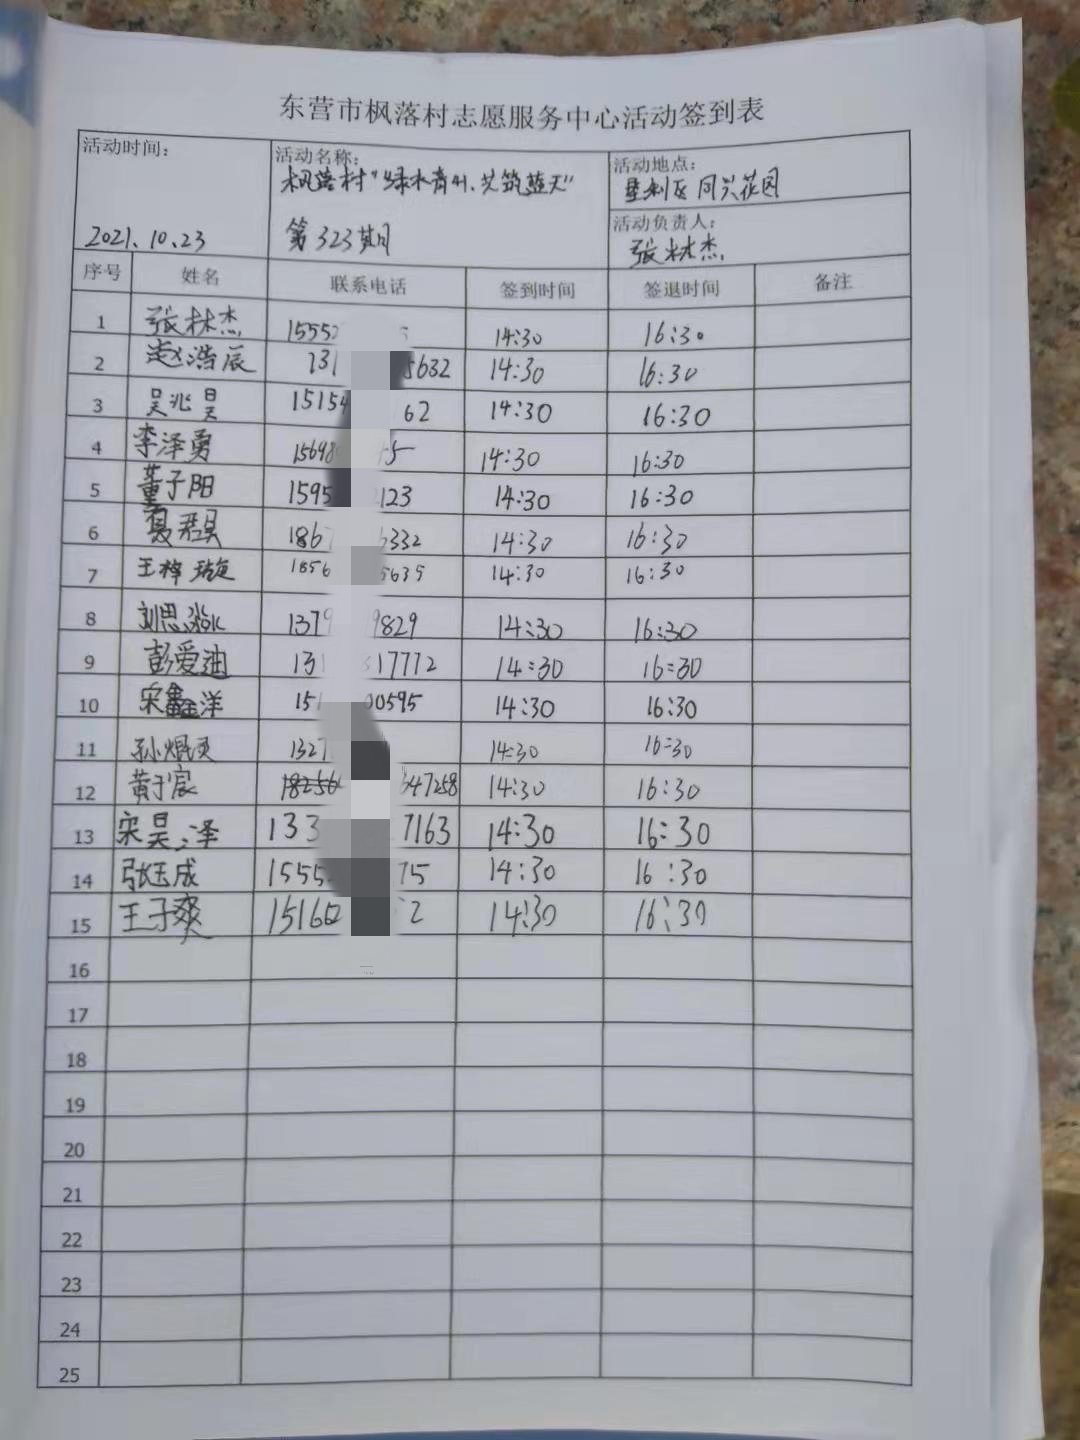 东营市枫落村志愿服务中心活动签到表
活动时间：
2021.10.23
活动名称：
枫落村"绿水青山、共筑蓝天"
第323期
活动地点：
垦利区 同兴花园
活动负责人：
张林杰
序号 姓名 联系电话 签到时间 签退时间 备注
1 张林杰 15552 5 14:30 16:30
2 赵浩辰 131 5632 14:30 16:30
3 吴兆昊 15154 62 14:30 16:30
4 李泽勇 15698 5 14:30 16:30
5 董子阳 1595 2123 14:30 16:30
6 夏君昊 1867 6332 14:30 16:30
7 王梓璇 1856 5635 14:30 16:30
8 刘思淼 1379 9829 14:30 16:30
9 彭爱迪 131 817772 14:30 16:30
10 宋鑫洋 151 00595 14:30 16:30
11 孙 1327 14:30 16:30
12 黄于宸 18256 647258 14:30 16:30
13 宋昊泽 133 7163 14:30 16:30
14 张玉成 1555 75 14:30 16:30
15 王子爽 15166 2 14:30 16:30
16
17
18
19
20
21
22
23
24
25